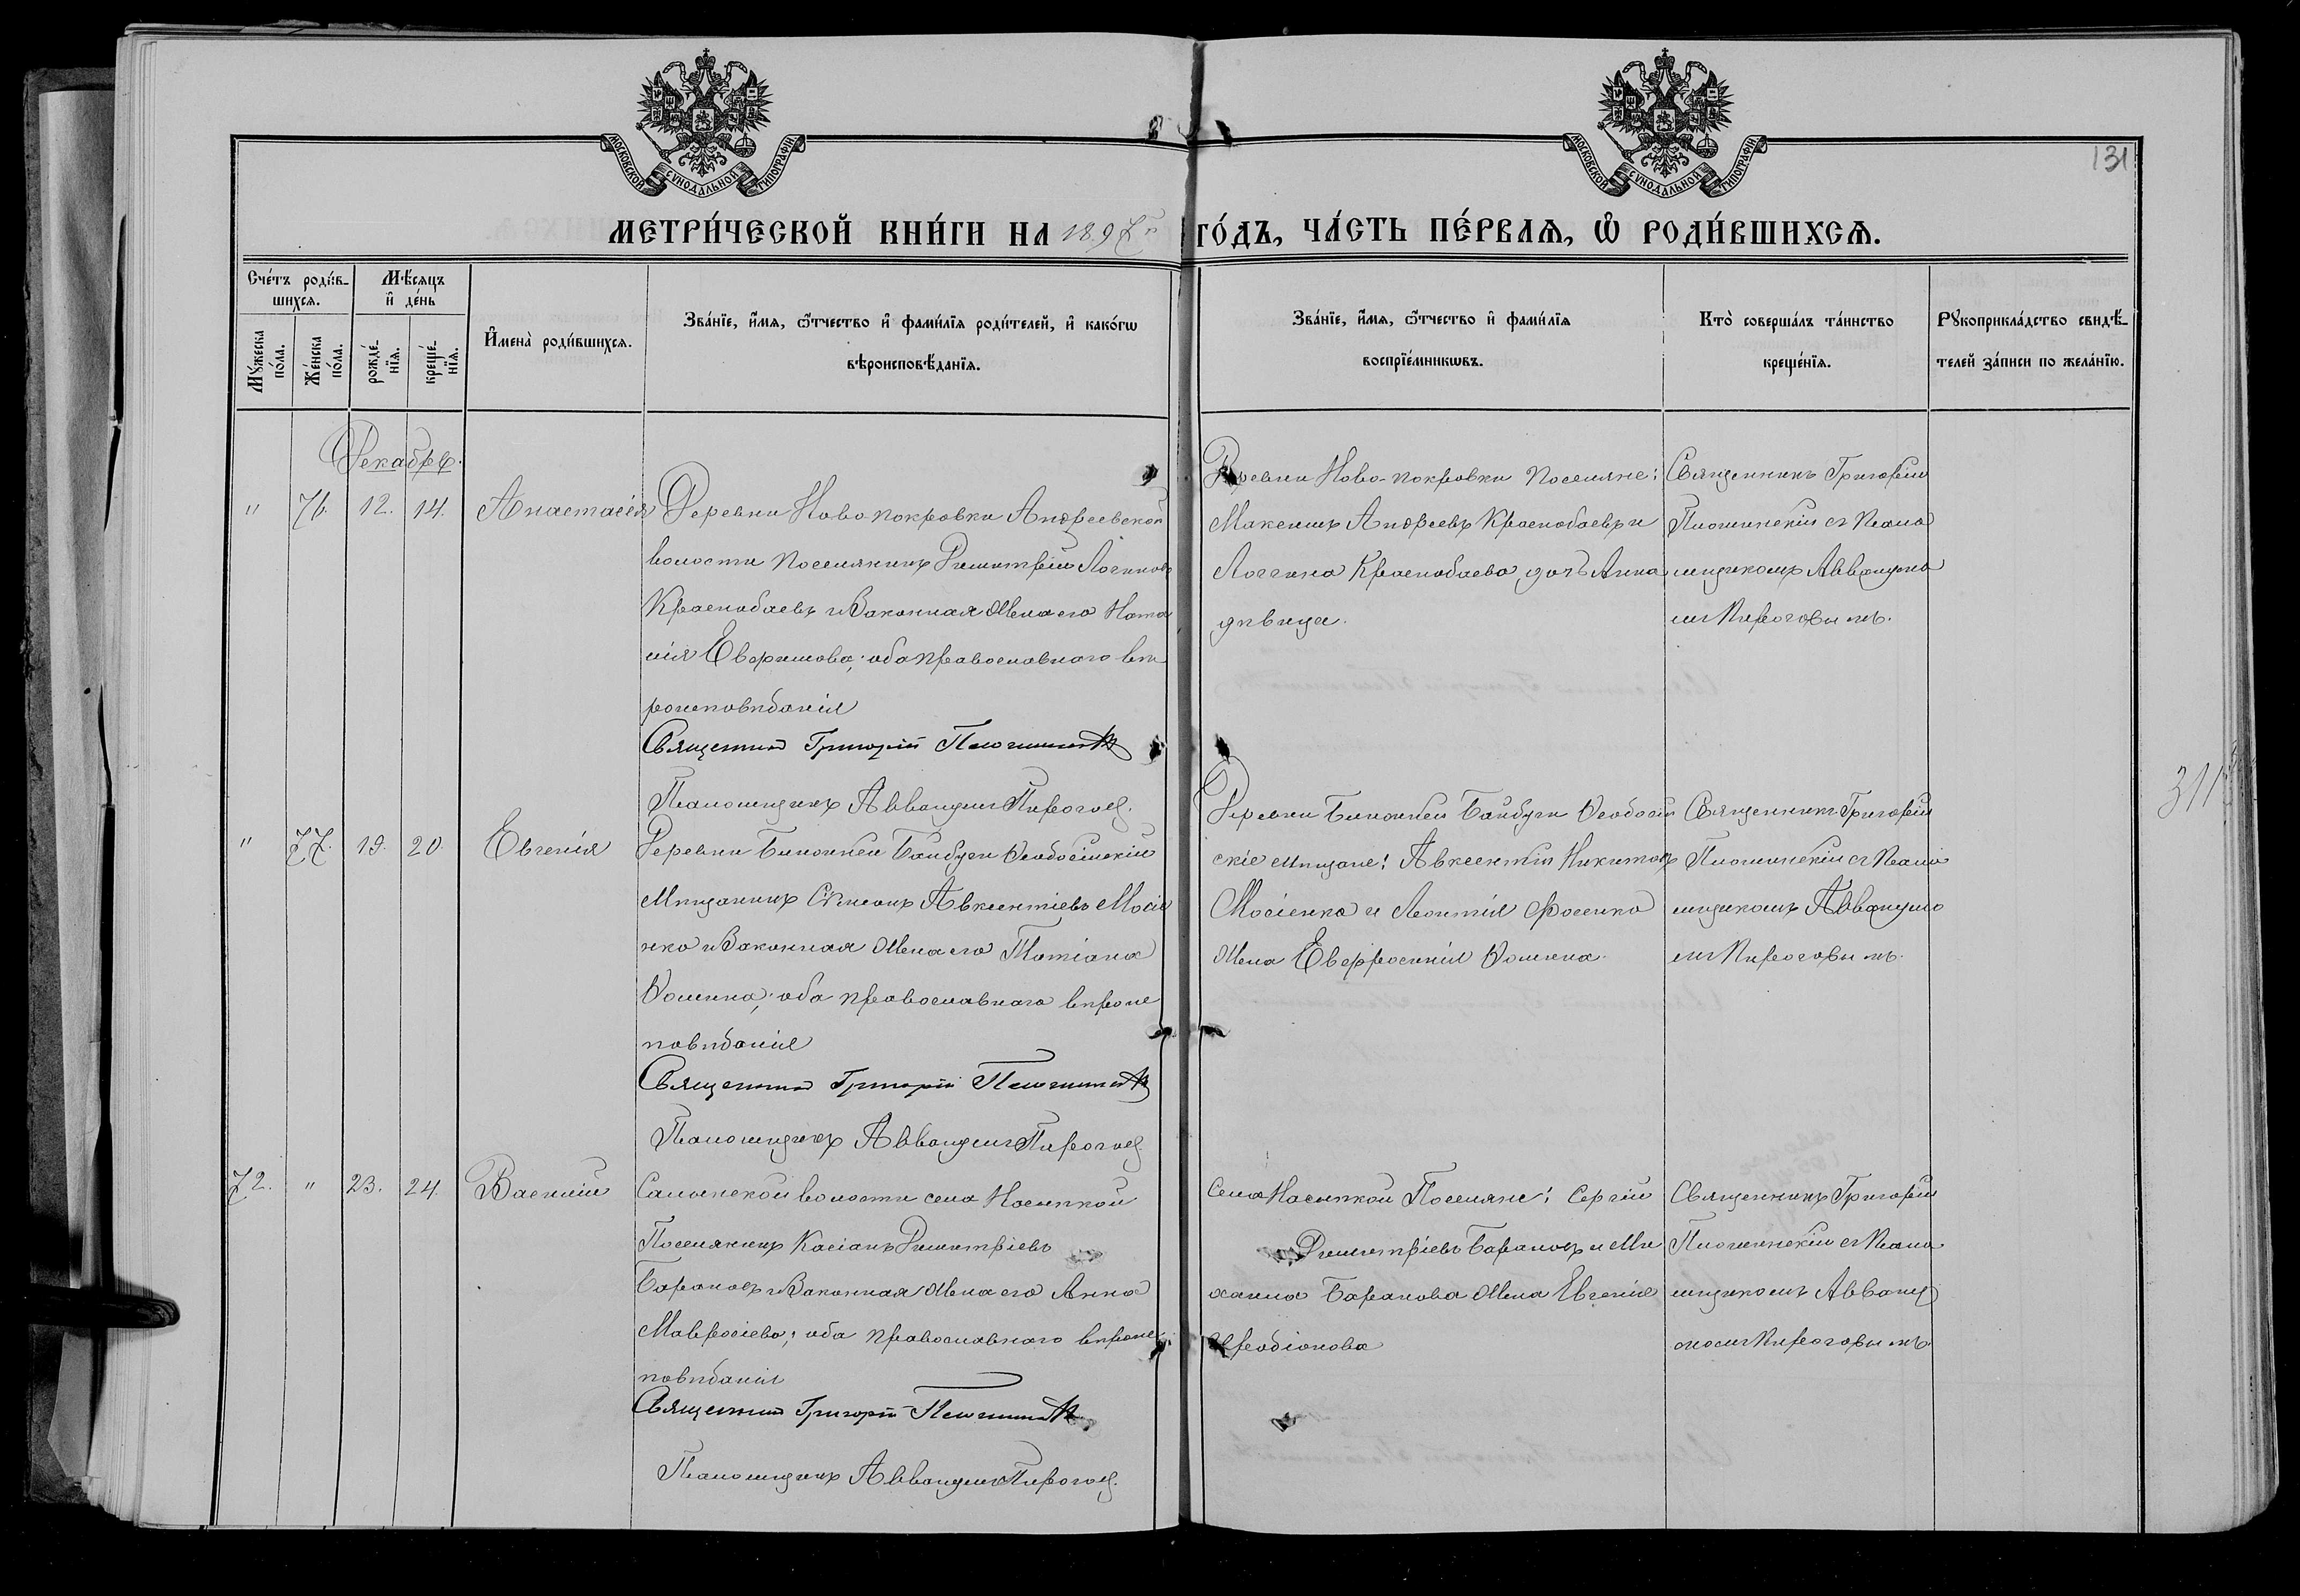 МОСКОВСКОЙ СѴНОДАЛЬНОЙ ТИПОГРАФІИ
МОСКОВСКОЙ СѴНОДАЛЬНОЙ ТИПОГРАФІИ
131
МЕТРИ́ЧЕСКОЙ КНИ́ГИ НА 1897 ГО́ДЪ, ЧА́СТЬ ПЕ́РВАѦ, Ѡ҆ РОДИ́ВШИХСѦ.
Сче́тъ роди́в-
шихсѧ.
Мѣ́сѧцъ
и҆ де́нь
Мꙋ́жеска
по́ла.
Же́нска
по́ла.
рожде́-
нїѧ.
креще́-
нїѧ.
И҆мена̀ роди́вшихсѧ.
Зва́нїе, и҆́мѧ, ѻ҆́тчество и҆ фами́лїѧ роди́телей, и҆ како́гѡ
вѣроисповѣ́данїѧ.
Зва́нїе, и҆́мѧ, ѻ҆́тчество и҆ фами́лїѧ
воспрїе́мникѡвъ.
Кто̀ соверша́лъ та́инство
креще́нїѧ.
Рꙋкоприкла́дство свидѣ́-
телей за́писи по жела́нїю.
Декабрь.
" 76. 12. 14. Анастасія
Деревни Ново-покровки Андреевской
волости поселянинъ Димитрій Логиновъ
Краснобаевъ и законная жена его Ната
лія Ефимова; оба православнаго вѣ
роисповѣданія
Священникъ Григорій
Псаломщикъ Аввакумъ Пироговъ.
Деревни Ново-покровки поселяне:
Максимъ Андреевъ Краснобаевъ и
Логгина Краснобаева дочь Анна
дѣвица.
Священникъ Григорій
съ Псало
мщикомъ Аввакумо
мъ Пироговымъ.
" 77. 19. 20. Евгенія
Деревни Ближней Байбуги Ѳеодосійскій
Мѣщанинъ Сѵмеонъ Авксентіевъ Мосіе
нко и законная жена его Татіана
Ѳомина; оба православнаго вѣроис
повѣданія
Священникъ Григорій
Псаломщикъ Аввакумъ Пироговъ.
Деревни Ближней Байбуги Ѳеодосій
скіе мѣщане: Авксентій Никитовъ
Мосіенко и Леонтія
жена Евфросинія Ѳомина.
Священникъ Григорій
съ Псало
мщикомъ Аввакумо
мъ Пироговымъ.
311
72. " 23. 24. Василій
Салынской волости села Насыпкой
Поселянинъ Касіанъ Димитріевъ
Барановъ и законная жена его Анна
Мавросіева; оба православнаго вѣроис
повѣданія
Священникъ Григорій
Псаломщикъ Аввакумъ Пироговъ.
Села Насыпкой Поселяне: Сергій
Димитріевъ Барановъ и Ми
хаила Баранова жена Евгенія
Иродіонова
Священникъ Григорій
съ Псало
мщикомъ Авваку
момъ Пироговымъ.